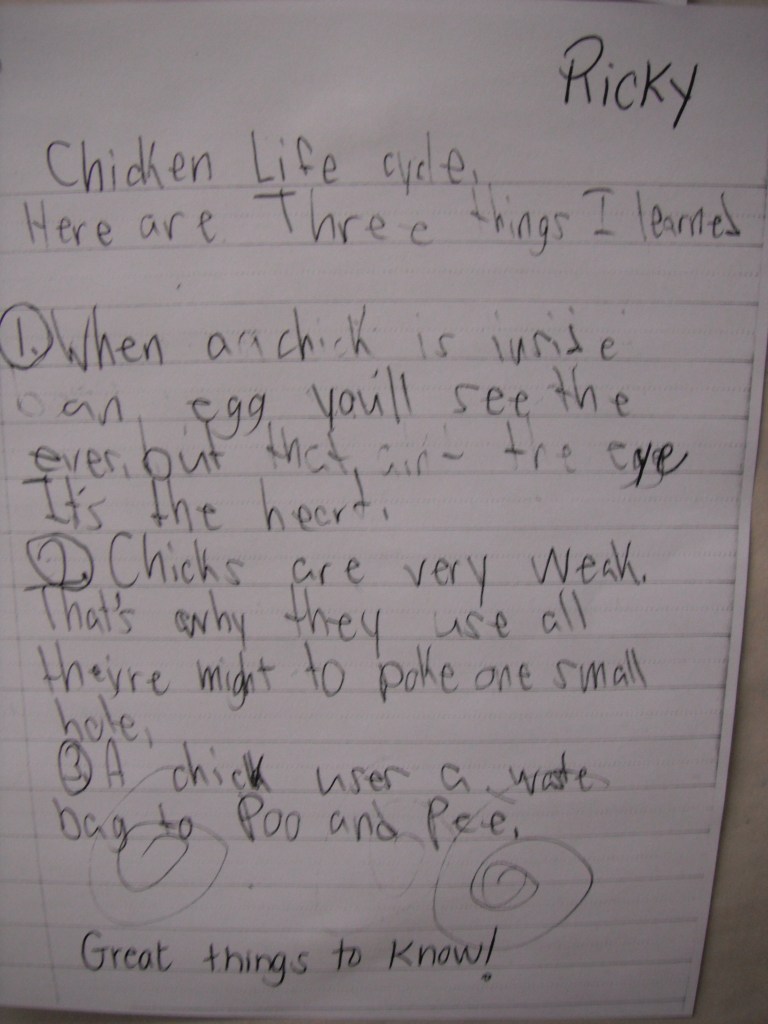 Ricky
Chicken Life cycle.
Here are Three things I learned
1. When a chick is inside
an egg you'll see the
eyes, but that ain't the eye
It's the heart.
2. Chicks are very weak.
That's why they use all
they're might to poke one small
hole,
3 A chick uses a waste
bag to Poo and Pee.
Great things to know!